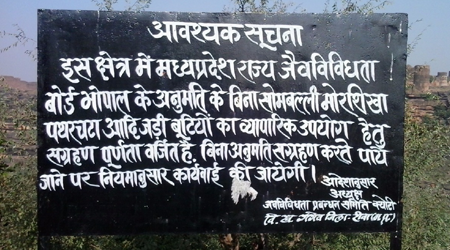 आवश्यक सूचना
इस क्षेत्र में मध्यप्रदेश राज्य जैवविविधता
बोर्ड भोपाल के अनुमति के बिना सोमबल्ली मोरशिखा
पथरचटा आदि जड़ी बूटियों का व्यापारिक उपयोग हेतु
संग्रहण पूर्णता वर्जित है. बिना अनुमति संग्रहण करते पाये
जाने पर नियमानुसार कार्यवाई की जायेगी।
आदेशानुसार
अध्यक्ष
जैवविविधता प्रबन्धन समिति क्योटि
वि.ख. गंगेव जिला-रीवा